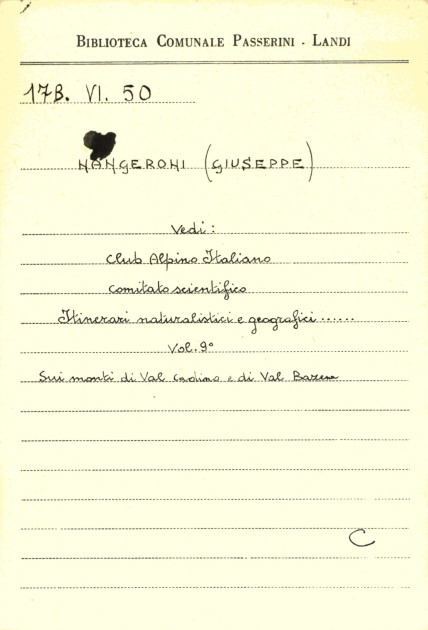 BIBLIOTECA COMUNALE PASSERINI - LANDI
17B. VI. 50
NANGERONI (GIUSEPPE)
Vedi:
Club Alpino Italiano
Comitato scientifico
Itinerari naturalistici e geografici ......
Vol. 9°
Sui monti di Val Cadino e di Val Bazena
C